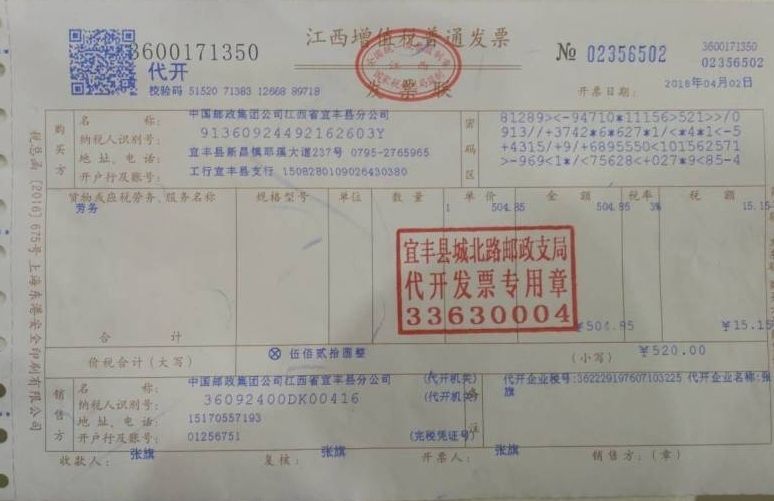 3600171350
代开
校验码 51520 71383 12668 89718
江西增值税普通发票
发票联
№ 02356502
3600171350
02356502
开票日期: 2018年04月02日
税总函〔2016〕675号 上海东港安全印刷有限公司
购买方
名 称: 中国邮政集团公司江西省宜丰县分公司
纳税人识别号: 91360924492162603Y
地 址、电 话: 宜丰县新昌镇耶溪大道237号 0795-2765965
开户行及账号: 工行宜丰县支行 1508280109026430380
密码区
81289><-94710*11156>521>>/0
913//+3742*6*627*1/<*4*1<-5
+4315/+9/+6895550<101562571
>-969<1*/<75628<+027*9<85-4
货物或应税劳务、服务名称 规格型号 单位 数 量 单 价 金 额 税率 税 额
劳务 1 504.85 504.85 3% 15.15
宜丰县城北路邮政支局
代开发票专用章
33630004
合 计 ¥504.85 ¥15.15
价税合计(大写) ⊗ 伍佰贰拾圆整 (小写) ¥520.00
销售方
名 称: 中国邮政集团公司江西省宜丰县分公司 (代开机关)
纳税人识别号: 36092400DK00416 (代开机关)
地 址、电 话: 15170557193
开户行及账号: 01256751 (完税凭证号)
备注
代开企业税号:362229197607103225 代开企业名称:张
旗
收款人: 张旗 复核: 张旗 开票人: 张旗 销售方:(章)